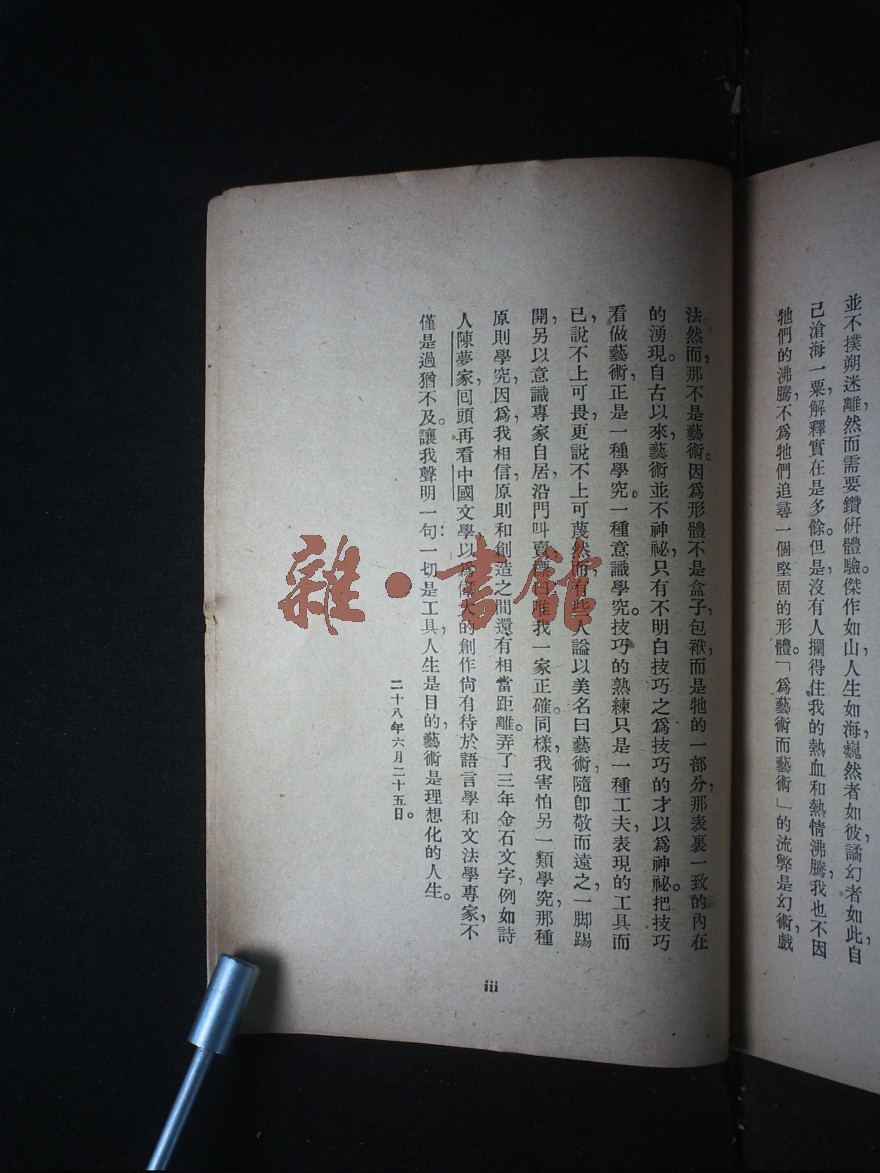 並不撲朔迷離然而需要鑽研體驗。傑作如山人生如海巍然者如彼譎幻者如此自
己滄海一粟，解釋實在是多餘。但是，沒有人攔得住我的熱血和熱情沸騰，我也不因
牠們的沸騰，不爲牠們追尋一個堅固的形體。「爲藝術而藝術」的流弊是幻術，戲
法。然而，那不是藝術。因爲形體不是盒子，包袱，而是牠的一部分，那表裏一致的內在
的湧現。自古以來，藝術並不神祕，只有不明白技巧之爲技巧的才以爲神祕。把技巧
看做藝術，正是一種學究。一種意識學究。技巧的熟練只是一種工夫，表現的工具而
已，說不上可畏，更說不上可蔑。然而有些人謚以美名曰藝術，隨即敬而遠之，一脚踢
開，另以意識專家自居，沿門叫賣，唯我一家正確。同樣，我害怕另一類學究，那種
原則學究，因爲我相信，原則和創造之間還有相當距離。弄了三年金石文字，例如詩
人陳夢家，囘頭再看中國文學，以爲偉大的創作尙有待於語言學和文法學專家，不
僅是過猶不及。讓我聲明一句：一切是工具，人生是目的，藝術是理想化的人生。
二十八年六月二十五日。
iii
雜·書館